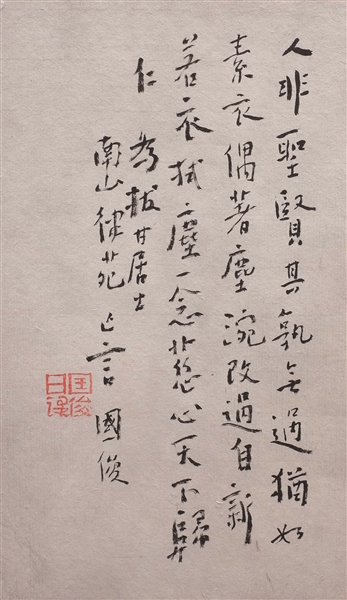 人非聖賢其孰無過猶如
素衣偶著塵涴改過自新
若衣拭塵一念慈心天下歸
仁 為拔甘居士
南山律苑亡言 國俊
國俊日課